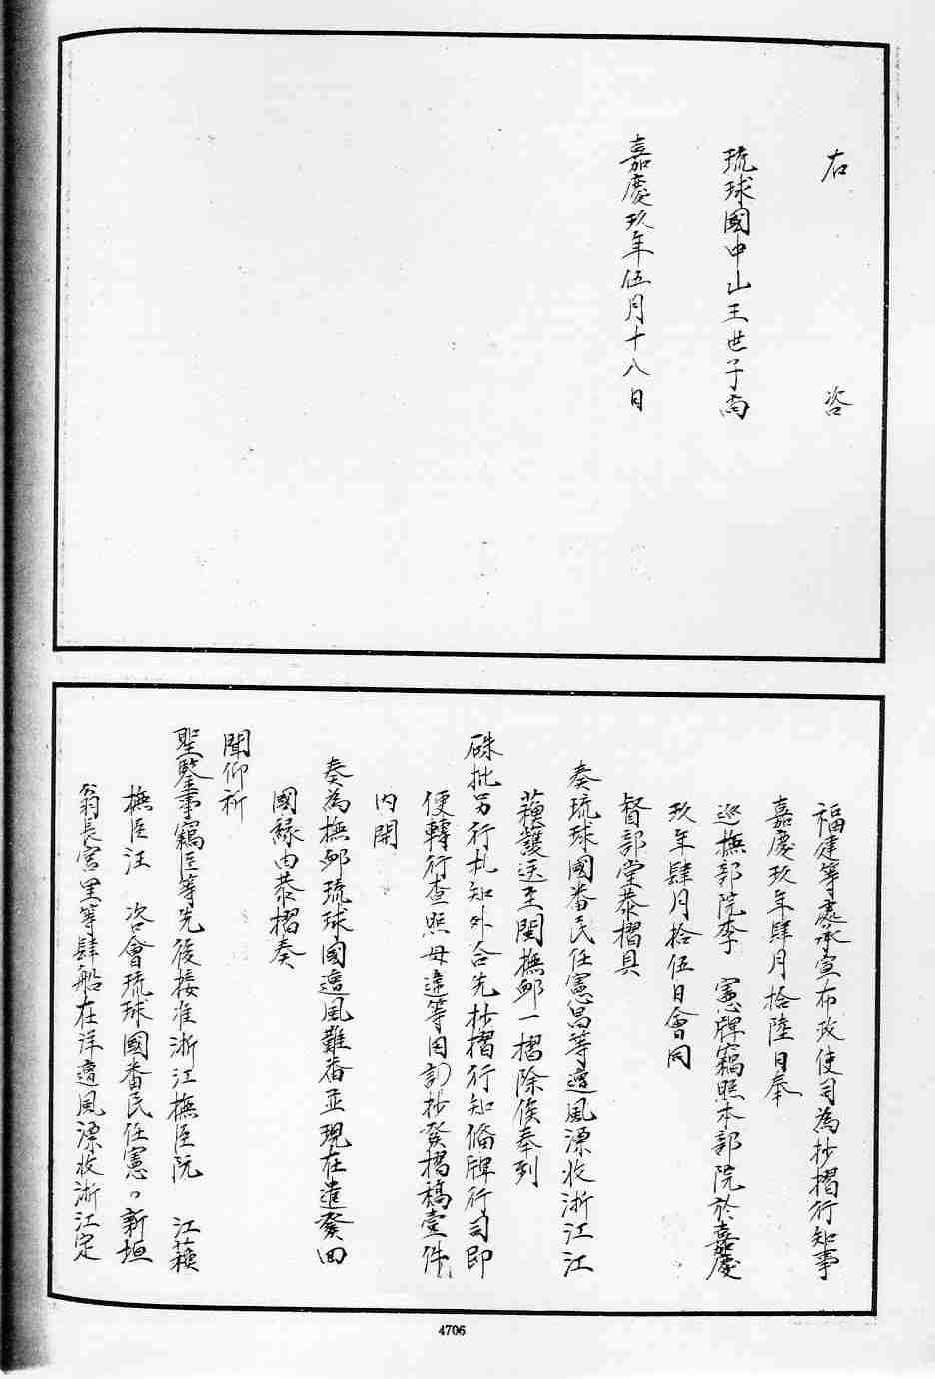 右 咨
琉球國中山王世子尚
嘉慶玖年伍月十八日
福建等處承宣布政使司為抄摺行知事
嘉慶玖年肆月拾陸日奉
巡撫部院李 憲牌竊照本部院於嘉慶
玖年肆月拾伍日會同
督部堂恭摺具
奏琉球國番民任憲昌等遭風漂收浙江江
蘓護送至閩撫邮一摺除俟奉到
硃批另行札知外合先抄摺行知備牌行司即
便轉行查照毋違等因計抄發摺稿壹件
内開
奏為撫邮琉球國遭風難番並現在遣發回
國緣由恭摺奏
聞仰祈
聖鑒事竊臣等先後接准浙江撫臣阮 江蘓
撫臣汪 咨會琉球國番民任憲 新垣
翁長宮里等肆船在洋遭風漂收浙江定
4706